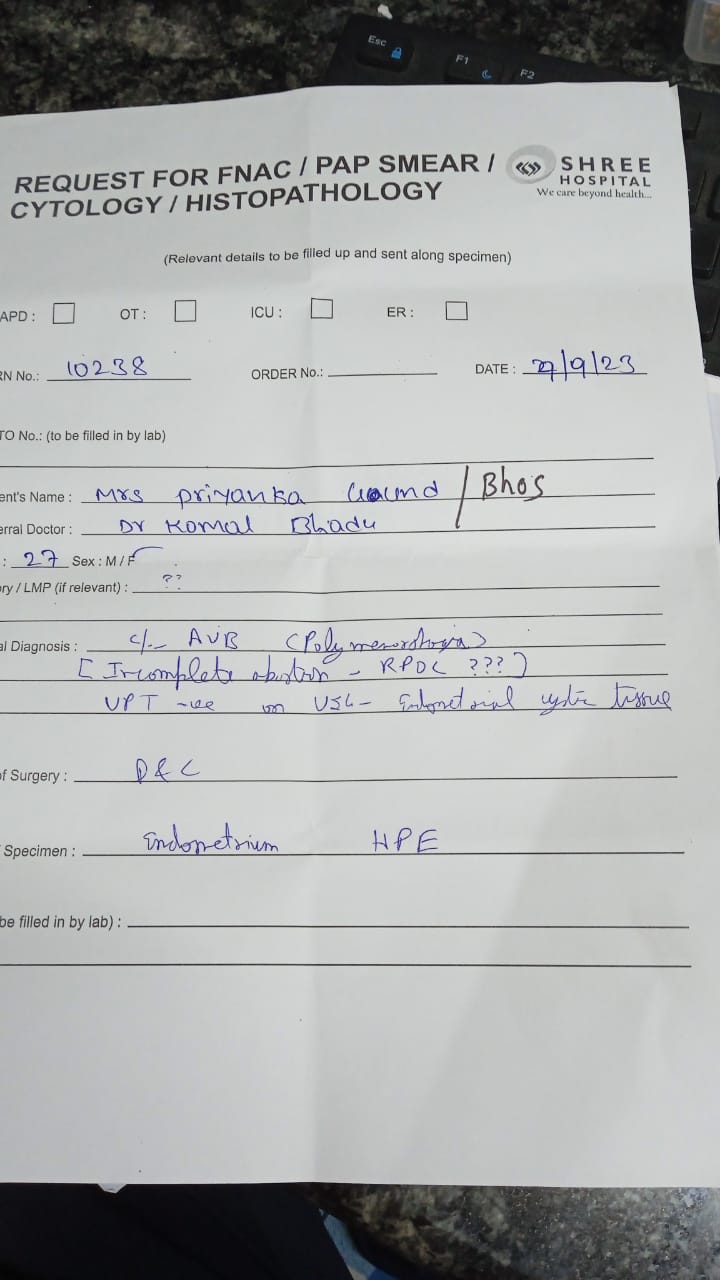 Esc F1 F2
REQUEST FOR FNAC / PAP SMEAR /
CYTOLOGY / HISTOPATHOLOGY
SHREE
HOSPITAL
We care beyond health...
(Relevant details to be filled up and sent along specimen)
APD : OT : ICU : ER :
RN No.: 10238 ORDER No.: DATE : 27/9/23
TO No.: (to be filled in by lab)
ent's Name : Mrs priyanka / Bhos
erral Doctor : Dr Komal Bhadu
: 27 Sex : M / F
ry / LMP (if relevant) : ??
al Diagnosis : c/- AUB (Polymenorrhogia)
[ Incomplete abortion - RPOC ??? ]
UPT -ve on USG - Endometrial cystic tissue
of Surgery : D&C
Specimen : Endometrium HPE
be filled in by lab) :